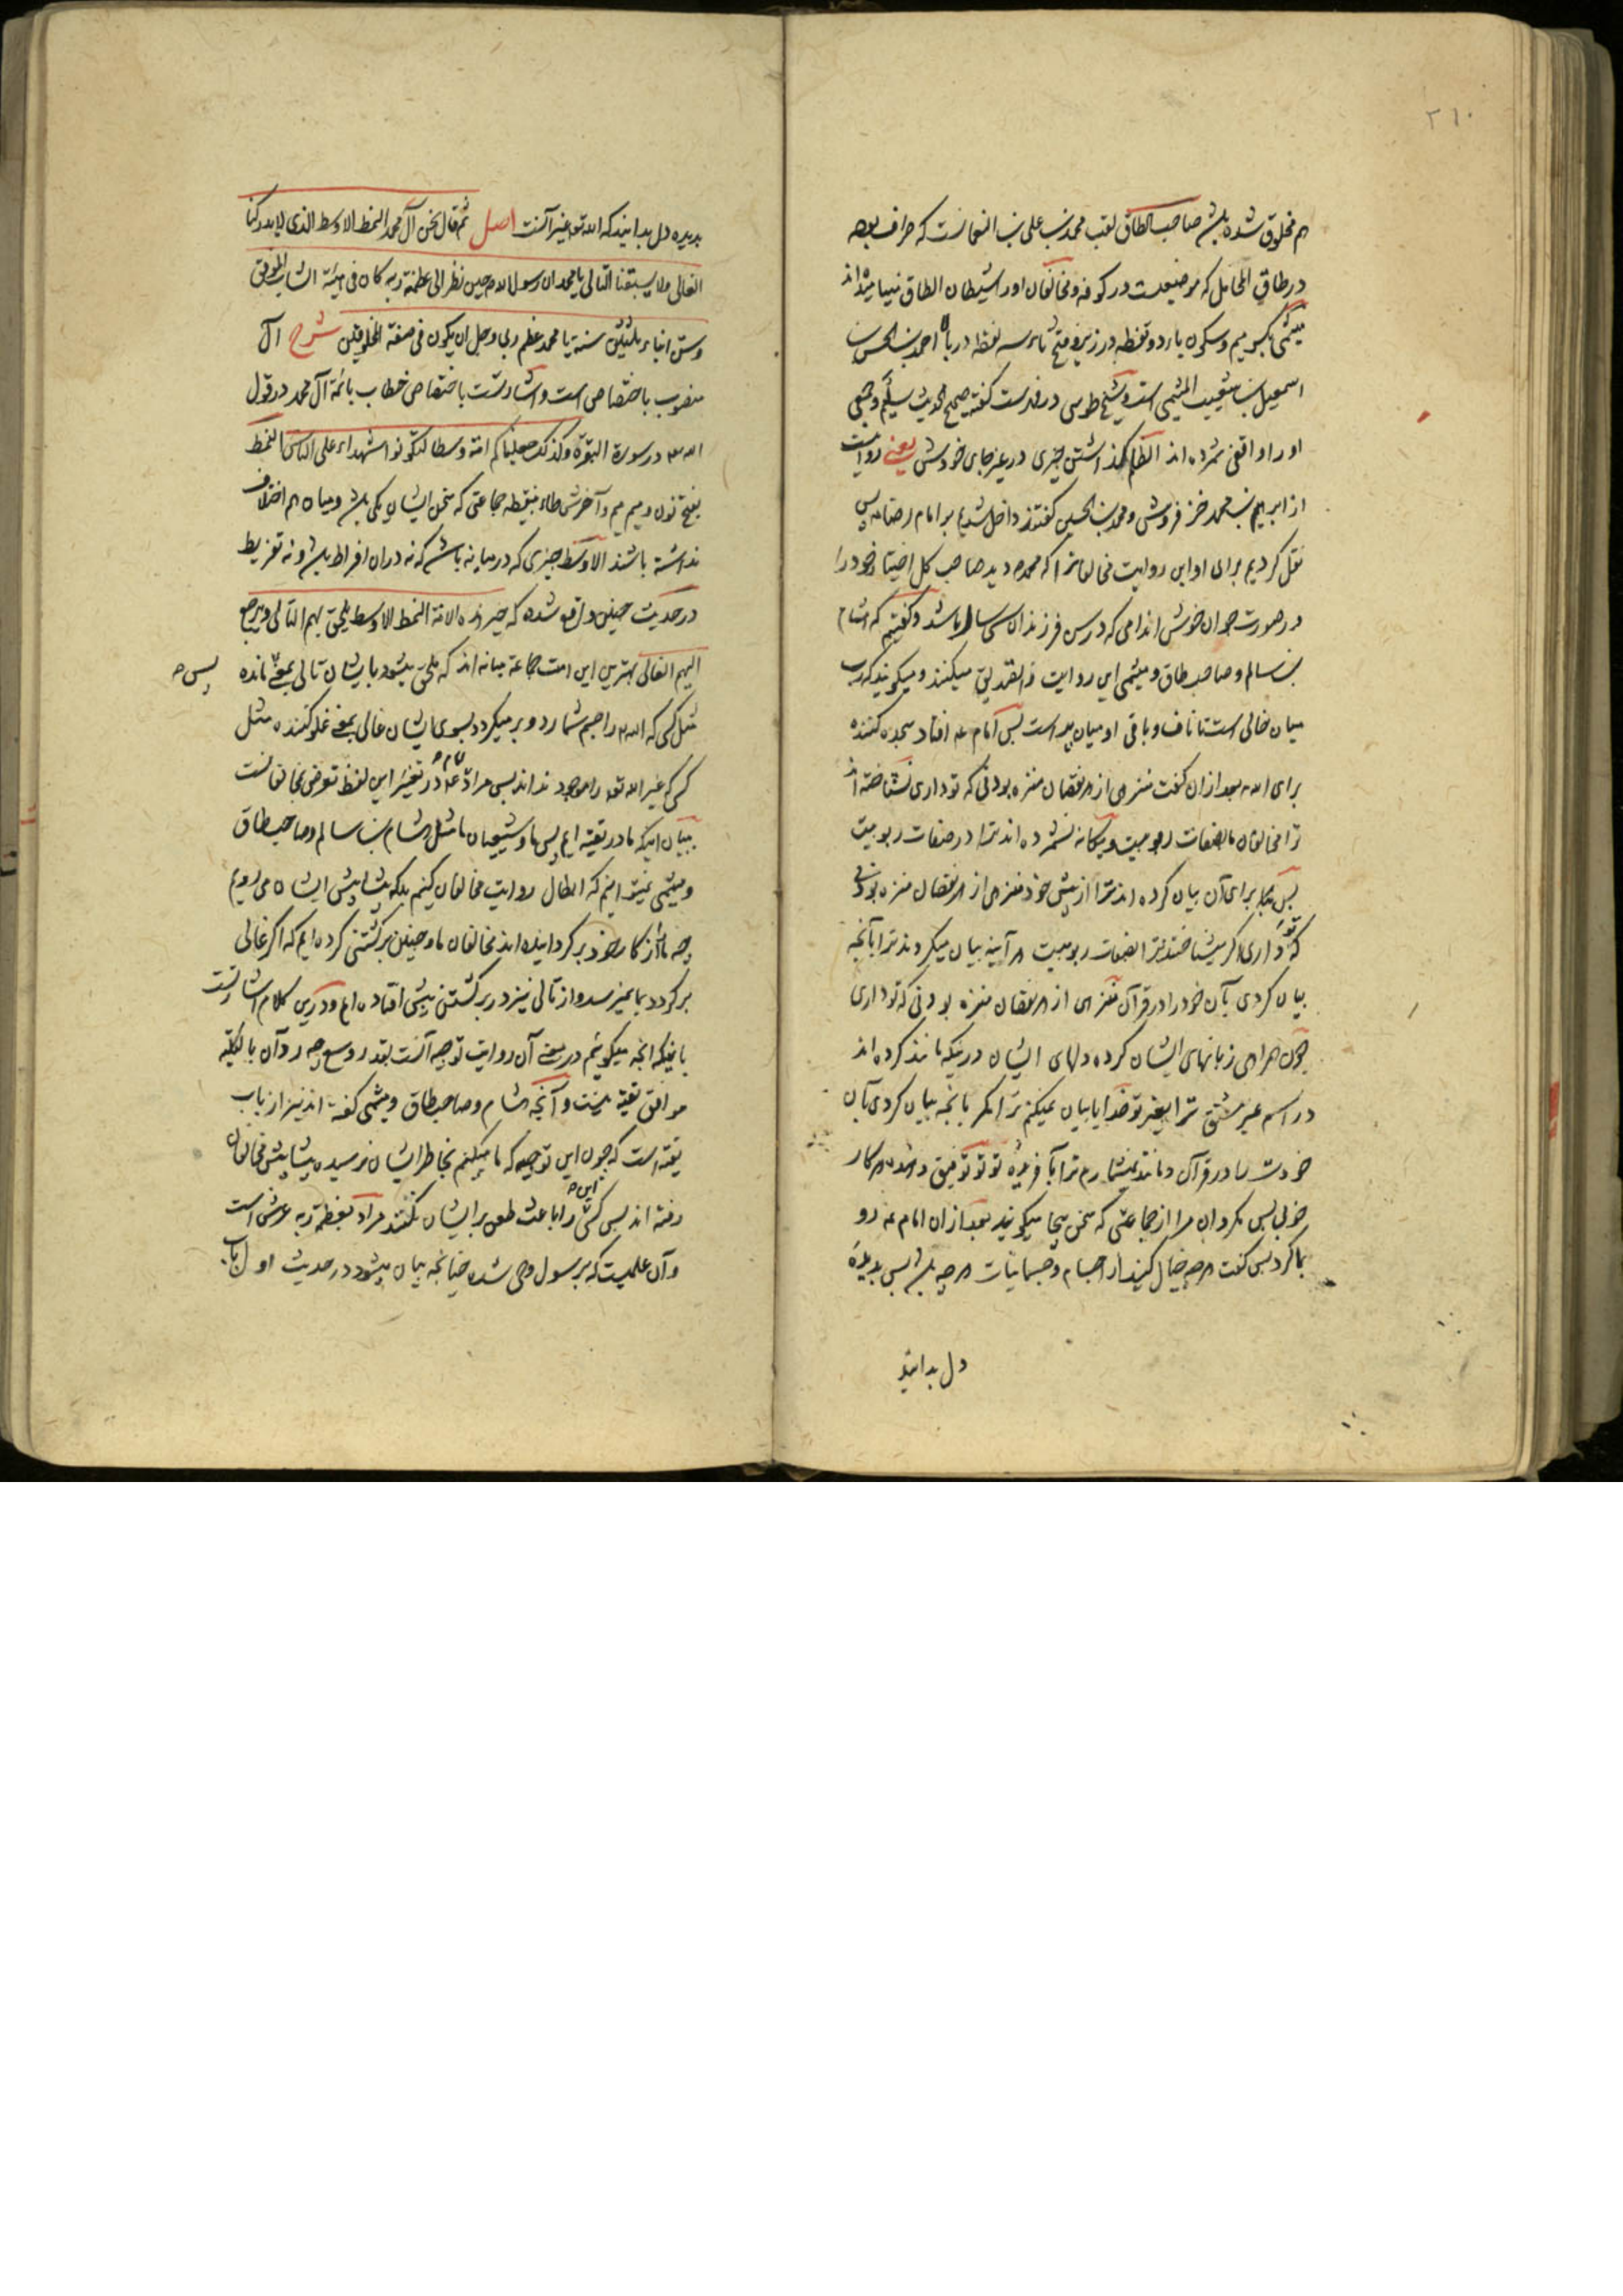 ۲۱۰
هم مخلوق شده باشد صاحب الطاق لقب محمد بن علی بن النعمانست که صراف بوده
در طاق المحامل که موضعیست در کوفه و مخالفان او را شیطان الطاق مینامیده اند
میثمی بکسر میم و سکون یاء دو نقطه در زیر و فتح ثاء سه نقطه در بالا احمد بن الحسن بن
اسمعیل بن شعیب المیثمی است و شیخ طوسی در فهرست گفته صحیح الحدیث سلیم و جمعی
او را واقفی شمرده اند الظلم گذاشتن چیزی در غیر جای خودش یعنی روایت است
از ابراهیم بن محمد خز فروش و محمد بن الحسین گفتند داخل شدیم بر امام رضا ع پس
نقل کردیم برای او این روایت مخالفانرا که محمد دید صاحب کل اختیار خود را
در صورت جوان خوش اندامی که در سن فرزندان سی ساله باشد و گفتیم که هشام
بن سالم و صاحب طاق و میثمی این روایت را تصدیق میکنند و میگویند که رب
میان خالی است تا ناف و باقی او میان پر است پس امام ع افتاد سجده کننده
برای الله بعد از ان گفت منزهی از هر نقصان منزه بودنی که تو داری نشناخته اند
ترا مخالفان ما بصفات ربوبیت و یگانه نشمرده اند ترا در صفات ربوبیت
پس بیجا برای آن بیان کرده اند ترا از پیش خود منزهی از هر نقصان منزه بودنی
که تو داری اگر میشناختند ترا بصفات ربوبیت هر آینه بیان میکردند ترا بآنچه
بیان کردی بآن خود را در قرآن منزهی از هر نقصان منزه بودنی که تو داری
چون همراهی زبانهای ایشان کرده دلهای ایشان در اینکه مانند کرده اند
در اسم غیر مشتق ترا بغیر تو خدایا بیان نمیکنم ترا مگر بآنچه بیان کردی بآن
خودت را در قرآن و مانند نمیشمارم ترا بآفریده تو تو توفیق دهنده هر کار
خوبی پس مگردان مرا از جماعتی که سخن بیجا میگویند بعد از ان امام ع رو
بما کرد پس گفت هر چه خیال کنید از اجسام و جسمانیات هر چه باشد پس بدیده
دل بدانید
بدیده دل بدانید که الله تع غیر آنست اصل ثم قال نحن آل محمد النمط الاوسط الذی لا یدرکنا
الغالی ولا یسبقنا التالی یا محمد ان رسول الله حین نظر الی عظمة ربه کان فی هیئة الشاب الموفق
وسن ابناء ثلثین سنة یا محمد عظم ربی و جل ان یکون فی صفة المخلوقین شرح آل
منصوب باختصاص است و اشارتست باختصاص خطاب بائمه آل محمد در قول
الله تع در سورة البقرة و کذلک جعلناکم امة وسطا لتکونوا شهداء علی الناس النمط
بفتح نون و میم میم و آخرش طاء بینقطه جماعتی که سخن ایشان یکی باشد و میان هم اختلاف
نداشته باشند الاوسط چیزی که در میانه باشد که نه در ان افراط باشد و نه تفریط
در حدیث چنین واقع شده که خیر هذه الامة النمط الاوسط یلحق بهم التالی و یرجع
الیهم الغالی بهترین این امت جماعة میانه اند که ملحق میشود بایشان تالی بمعنی مانده پس
مثل کسی که الله را جسم شمارد و بر میگردد بسوی ایشان غالی بمعنی غلو کننده مثل
کسی که غیر الله تع را موجود نداند پس مراد امام ع در تفسیر این لفظ تعرض بمخالفانست
ببیان اینکه ما در تقیه ایم پس ما و شیعیان ما مثل هشام بن سالم و صاحب طاق
و میثمی نمیتوانیم که ابطال روایت مخالفان کنیم بلکه پیشاپیش ایشان میرویم
چه ما را از کار خود بر گردانیده اند مخالفان ما و چنین برگشتنی کرده ایم که اگر غالی
برگردد بما نمیرسد و از تالی نیز در برگشتن پیشی افتاده ایم و در این کلام اشارتست
باینکه آنچه میگوئیم در معنی آن روایت توجیه آنست بقدر وسع چه رد آن بالکلیة
موافق تقیه نیست و آنچه هشام و صاحب طاق و میثمی گفته اند نیز از باب
تقیه است که چون این توجیه که ما میکنیم بخاطر ایشان نرسیده پیشاپیش مخالفان
رفته اند پس کسی این را باعث طعن بر ایشان نکند مراد بعظمة ربه عرش است
و آن علمیست که بر رسول وحی شده چنانچه بیان میشود در حدیث اول باب